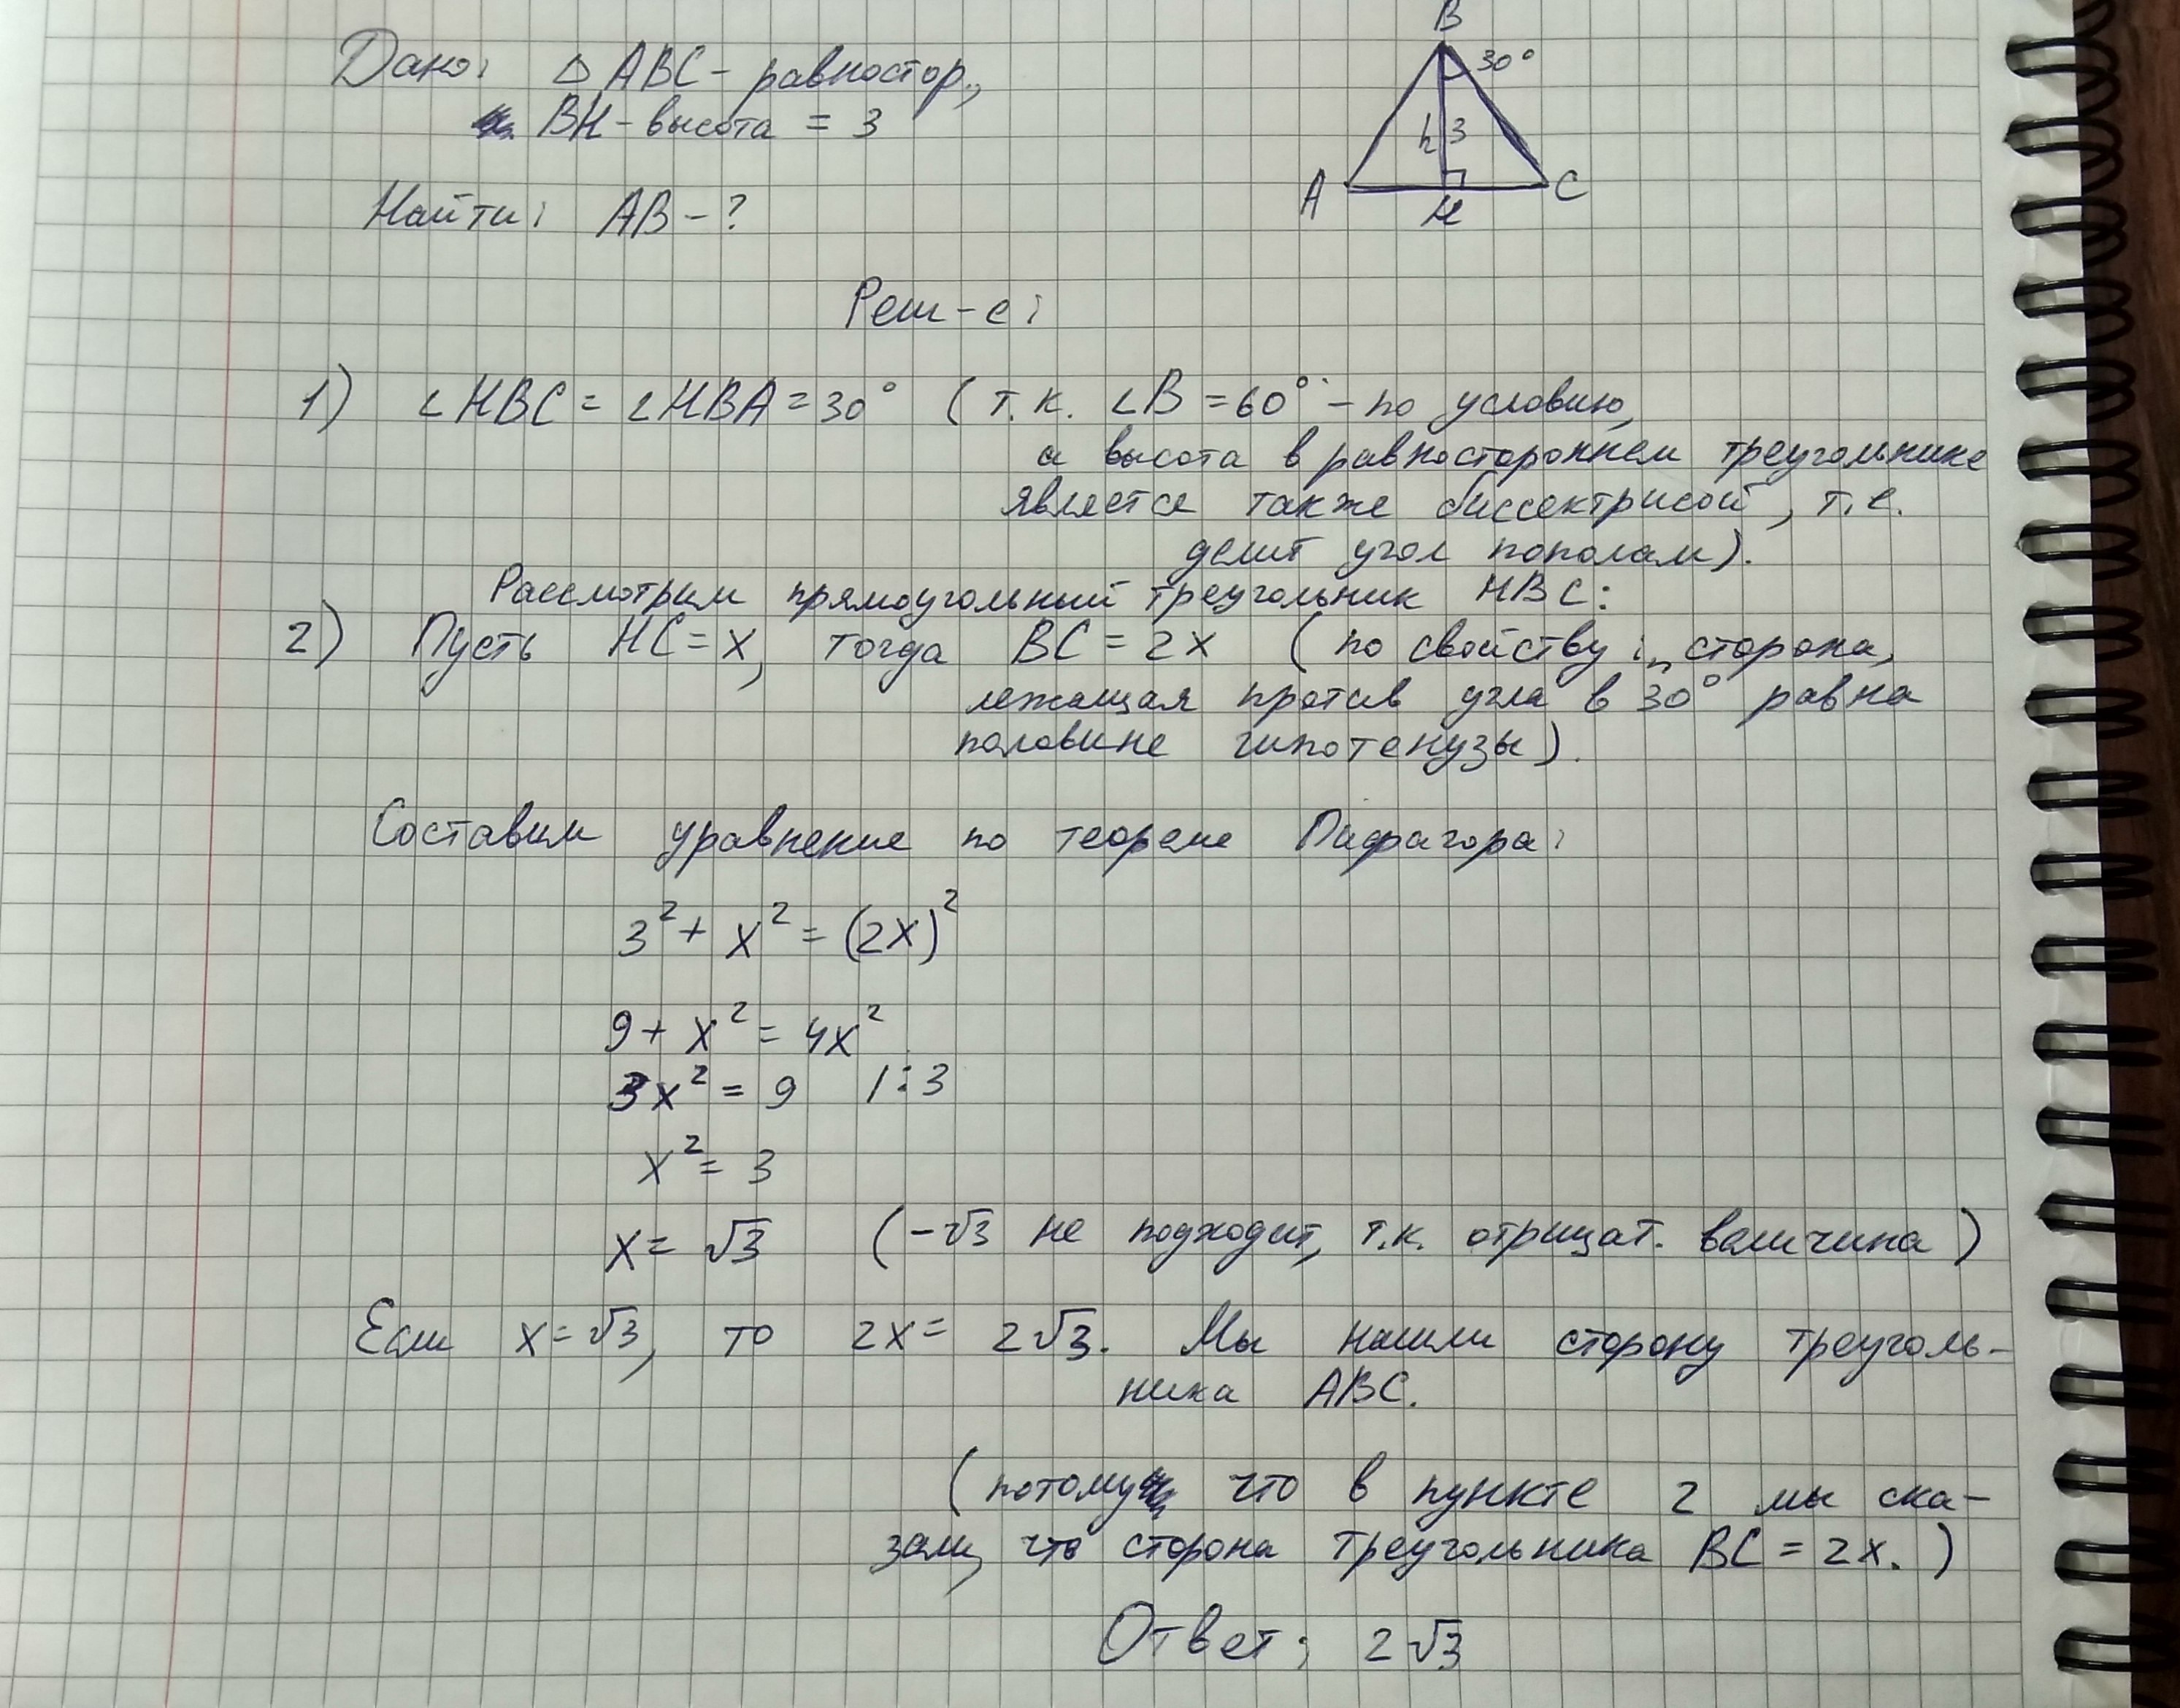 Дано: △ ABC - равностор.,
BH - высота = 3
Найти: AB - ?
B
30°
h 3
A
H
C
Реш-е:
1) ∠HBC = ∠HBA = 30° (т.к. ∠B = 60° - по условию,
а высота в равностороннем треугольнике
является также биссектрисой, т.е.
делит угол пополам).
Рассмотрим прямоугольный треугольник HBC:
2) Пусть HC = x, тогда BC = 2x (по свойству: „сторона,
лежащая против угла в 30° равна
половине гипотенузы).
Составим уравнение по теореме Пифагора:
3² + x² = (2x)²
9 + x² = 4x²
3x² = 9 | : 3
x² = 3
x = √3 (-√3 не подходит, т.к. отрицат. величина)
Если x = √3, то 2x = 2√3. Мы нашли сторону треуголь-
ника ABC.
(потому что в пункте 2 мы ска-
зали, что сторона треугольника BC = 2x.)
Ответ: 2√3